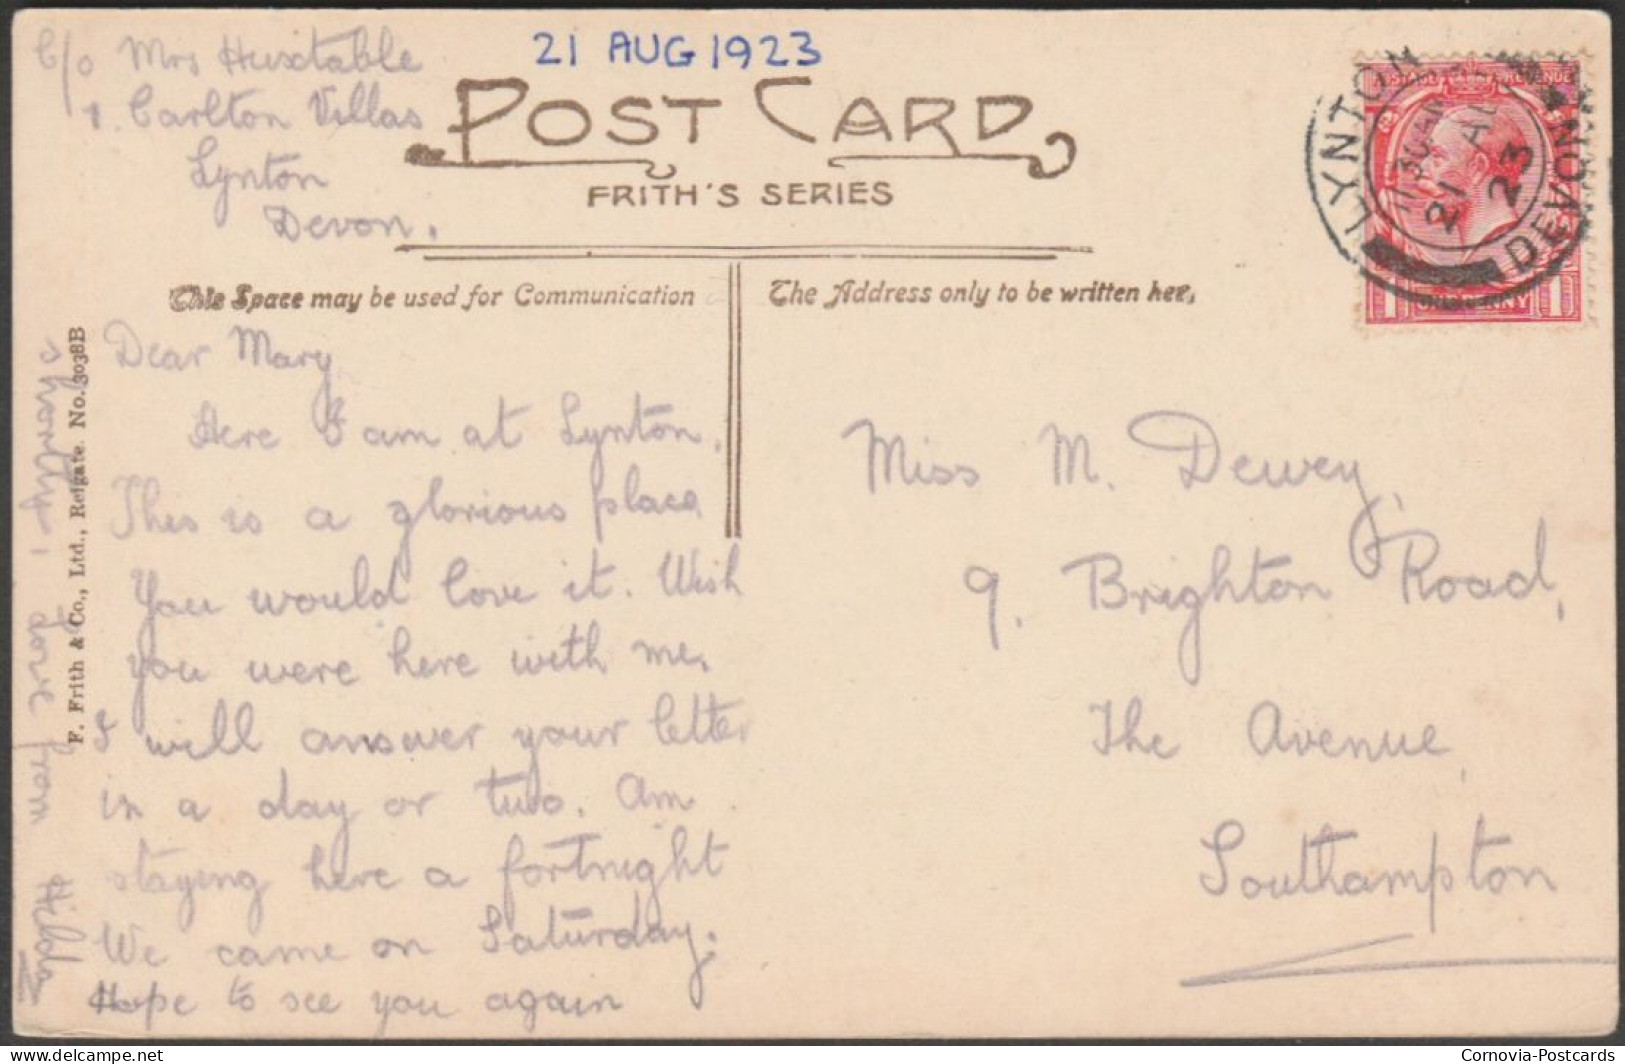 c/o Mrs Huxtable
1. Carlton Villas
Lynton
Devon.
21 AUG 1923
POST CARD
FRITH'S SERIES
This Space may be used for Communication
The Address only to be written here,
LYNTON
DEVON
11 30 AM
21 AU
23
POSTAGE REVENUE
1 ONE PENNY 1
Dear Mary
Here I am at Lynton.
This is a glorious place
You would love it. Wish
you were here with me.
I will answer your letter
in a day or two. Am
staying here a fortnight
We came on Saturday.
Hope to see you again
shortly. love from Hilda
F. Frith & Co., Ltd., Reigate. No. 3038B
Miss M. Dewey,
9. Brighton Road,
The Avenue,
Southampton
delcampe.net
Cornovia-Postcards